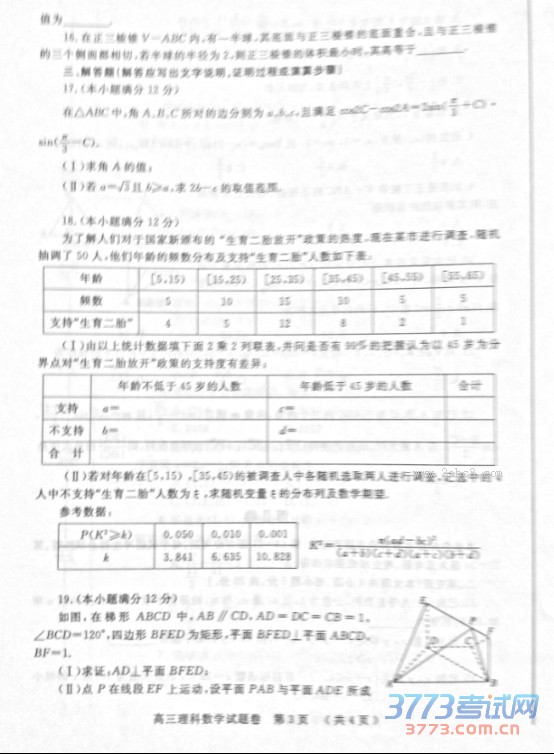 值为
16.在正三棱锥 V—ABC 内,有一半球,其底面与正三棱锥的底面重合,且与正三棱锥
的三个侧面都相切,若半球的半径为 2,则正三棱锥的体积最小时,其高等于
三、解答题(解答应写出文字说明,证明过程或演算步骤)
17.(本小题满分 12 分)
在△ABC 中,角 A,B,C 所对的边分别为 a,b,c,且满足 cos2C-cos2A=2sin(π/3+C)·
sin(π/3-C).
(Ⅰ)求角 A 的值;
(Ⅱ)若 a=√3且 b≥a,求 2b-c 的取值范围.
18.(本小题满分 12 分)
为了解人们对于国家新颁布的“生育二胎放开”政策的热度,现在某市进行调查,随机
抽调了 50 人,他们年龄的频数分布及支持“生育二胎”人数如下表:
年龄 [5,15) [15,25) [25,35) [35,45) [45,55) [55,65)
频数 5 10 15 10 5 5
支持“生育二胎” 4 5 12 8 2 1
(Ⅰ)由以上统计数据填下面 2 乘 2 列联表,并问是否有 99%的把握认为以 45 岁为分
界点对“生育二胎放开”政策的支持度有差异:
年龄不低于 45 岁的人数 年龄低于 45 岁的人数 合计
支持 a= c=
不支持 b= d=
合 计
(Ⅱ)若对年龄在[5,15),[35,45)的被调查人中各随机选取两人进行调查,记选中的 4
人中不支持“生育二胎”人数为 ξ,求随机变量 ξ 的分布列及数学期望.
参考数据:
P(K²≥k) 0.050 0.010 0.001
k 3.841 6.635 10.828
K²=n(ad-bc)²/(a+b)(c+d)(a+c)(b+d)
19.(本小题满分 12 分)
如图,在梯形 ABCD 中,AB∥CD,AD=DC=CB=1,
∠BCD=120°,四边形 BFED 为矩形,平面 BFED⊥平面 ABCD,
BF=1.
(Ⅰ)求证:AD⊥平面 BFED;
(Ⅱ)点 P 在线段 EF 上运动,设平面 PAB 与平面 ADE 所成
E
P
F
D
C
A
B
高三理科数学试题卷 第 3 页 (共 4 页)
3773考试网
3773.com.cn